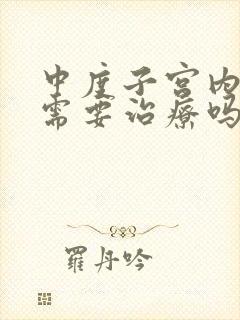 中度子宫内
需要治療吗
羅丹吟